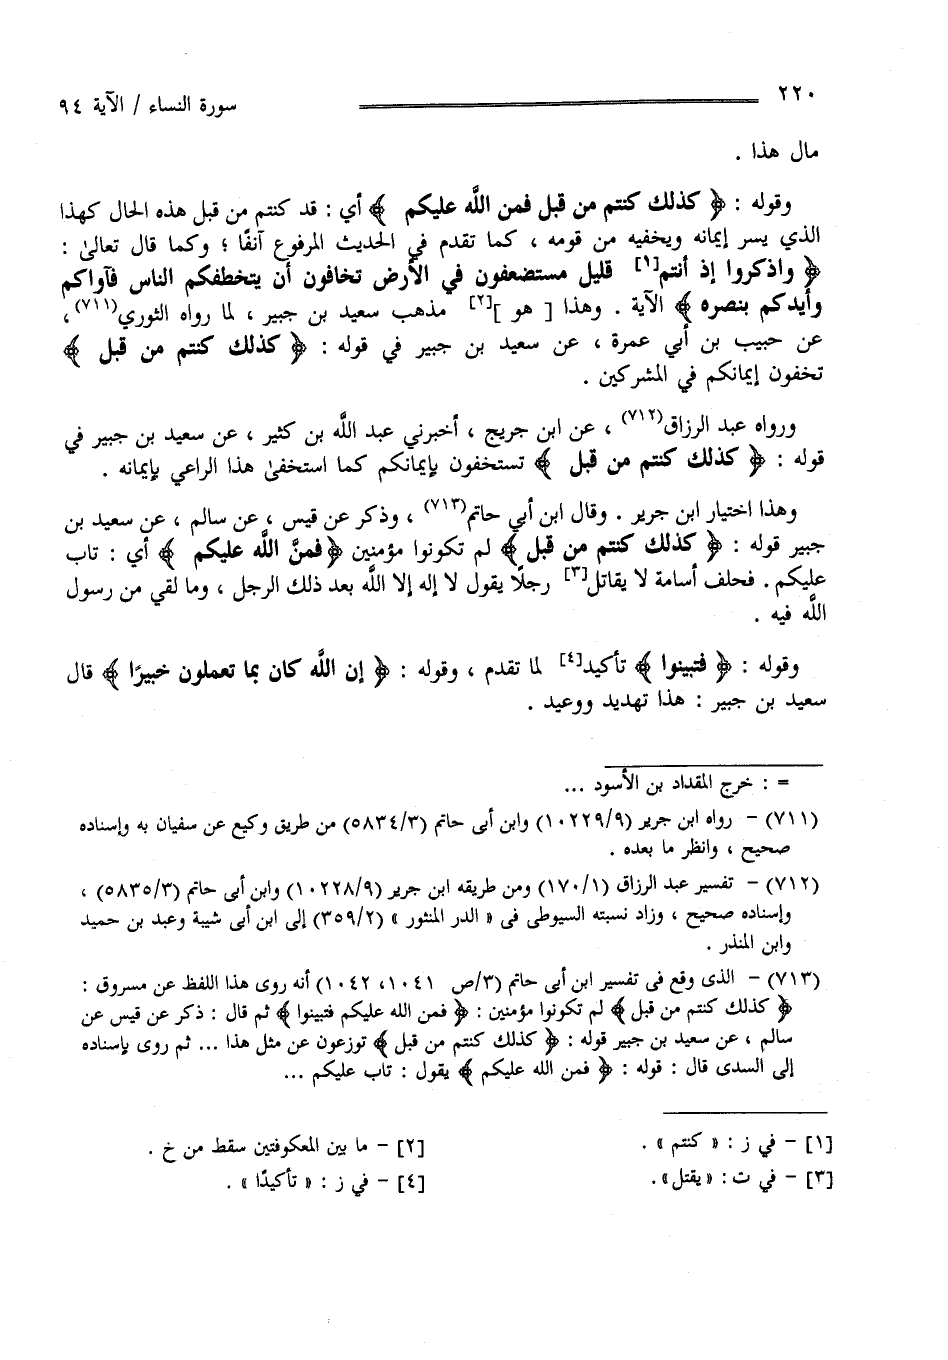 ٢٢٠ سورة النساء / الآية ٩٤
مال هذا .
وقوله : ﴿ كذلك كنتم من قبل فمن اللَّه عليكم ﴾ أي : قد كنتم من قبل هذه الحال كهذا
الذي يسر إيمانه ويخفيه من قومه ، كما تقدم في الحديث المرفوع آنفًا ؛ وكما قال تعالىٰ :
﴿ واذكروا إذ أنتم[١] قليل مستضعفون في الأرض تخافون أن يتخطفكم الناس فآواكم
وأيدكم بنصره ﴾ الآية . وهذا [ هو ][٢] مذهب سعيد بن جبير ، لما رواه الثوري(٧١١) ،
عن حبيب بن أبي عمرة ، عن سعيد بن جبير في قوله : ﴿ كذلك كنتم من قبل ﴾
تخفون إيمانكم في المشركين .
ورواه عبد الرزاق(٧١٢) ، عن ابن جريج ، أخبرني عبد اللَّه بن كثير ، عن سعيد بن جبير في
قوله : ﴿ كذلك كنتم من قبل ﴾ تستخفون بإيمانكم كما استخفىٰ هذا الراعي بإيمانه .
وهذا اختيار ابن جرير . وقال ابن أبي حاتم(٧١٣) ، وذكر عن قيس ، عن سالم ، عن سعيد بن
جبير قوله : ﴿ كذلك كنتم من قبل ﴾ لم تكونوا مؤمنين ﴿فمنَّ اللَّه عليكم ﴾ أي : تاب
عليكم . فحلف أسامة لا يقاتل[٣] رجلًا يقول لا إله إلا اللَّه بعد ذلك الرجل ، وما لقي من رسول
اللَّه فيه .
وقوله : ﴿ فتبينوا ﴾ تأكيد[٤] لما تقدم ، وقوله : ﴿ إن اللَّه كان بما تعملون خبيرًا ﴾ قال
سعيد بن جبير : هذا تهديد ووعيد .
= : خرج المقداد بن الأسود ...
(٧١١) - رواه ابن جرير (١٠٢٢٩/٩) وابن أبى حاتم (٥٨٣٤/٣) من طريق وكيع عن سفيان به وإسناده
صحيح ، وانظر ما بعده .
(٧١٢) - تفسير عبد الرزاق (١٧٠/١) ومن طريقه ابن جرير (١٠٢٢٨/٩) وابن أبى حاتم (٥٨٣٥/٣) ،
وإسناده صحيح ، وزاد نسبته السيوطى فى « الدر المنثور » (٣٥٩/٢) إلى ابن أبى شيبة وعبد بن حميد
وابن المنذر .
(٧١٣) - الذى وقع فى تفسير ابن أبى حاتم (٣/ص ١٠٤١، ١٠٤٢) أنه روى هذا اللفظ عن مسروق :
﴿ كذلك كنتم من قبل ﴾ لم تكونوا مؤمنين : ﴿ فمن الله عليكم فتبينوا ﴾ ثم قال : ذكر عن قيس عن
سالم ، عن سعيد بن جبير قوله : ﴿ كذلك كنتم من قبل ﴾ توزعون عن مثل هذا ... ثم روى بإسناده
إلى السدى قال : قوله : ﴿ فمن الله عليكم ﴾ يقول : تاب عليكم ...
[١] - في ز : « كنتم » . [٢] - ما بين المعكوفتين سقط من خ .
[٣] - في ت : «يقتل» . [٤] - في ز : « تأكيدًا » .